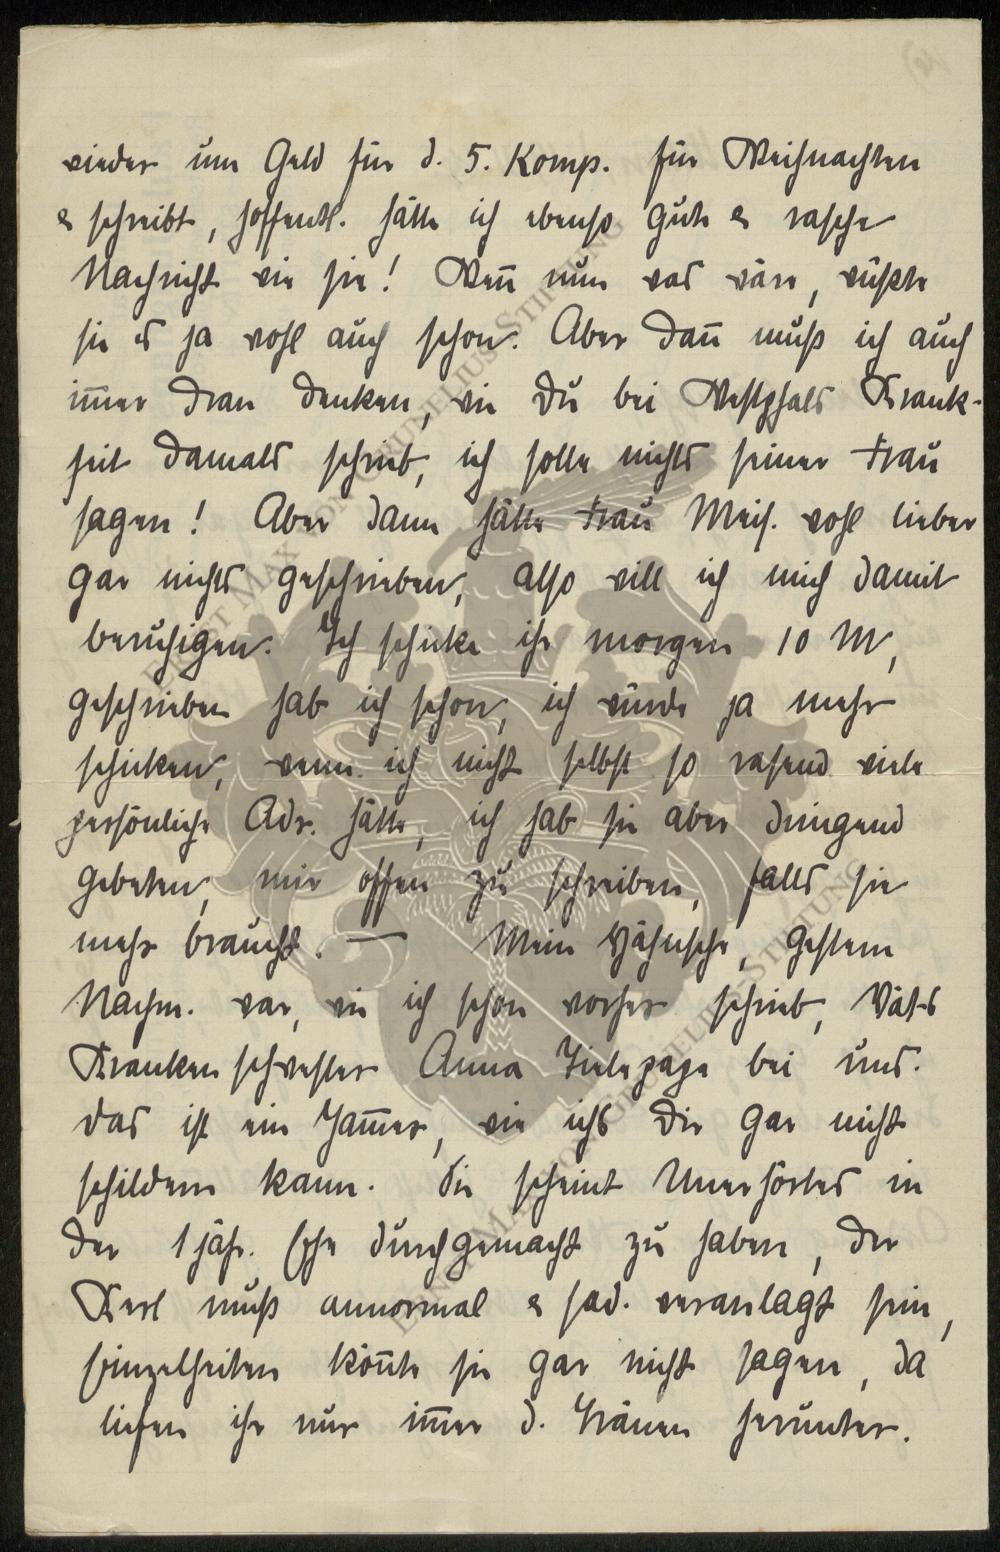 wieder um Geld für d. 5. Komp. für Weihnachten
& schreibt, hoffentl. hätte ich ebenso gute & rasche
Nachricht wie sie! Weñ nun was wäre, wüßte
sie es ja wohl auch schon. Aber dañ muß ich auch
im̃er dran denken, wie Du bei Westphals Krank-
heit damals schrieb, ich solle nichts seiner Frau
sagen! Aber dann hätte Frau Meis. wohl lieber
gar nichts geschrieben, also will ich mich damit
beruhigen. Ich schicke ihr morgen 10 M,
geschrieben hab ich schon, ich würde ja mehr
schicken, wenn ich nicht selbst so rasend viele
persönliche Adr. hätte, ich hab sie aber dringend
gebeten, mir offen zu schreiben, falls sie
mehr braucht. — Mein Hähnsche, gestern
Nachm. war, wie ich schon vorher schrieb, Väts
Krankenschwester Anna Tielepape bei uns.
das ist ein Jam̃er, wie ichs Dir gar nicht
schildern kann. Die scheint Unerhörtes in
der 1 jäh. Ehe durchgemacht zu haben, der
Kerl muß annormal & sad. veranlagt sein,
Einzelheiten kon̄te sie gar nicht sagen, da
liefen ihr nur im̃er d. Tränen herunter.
ERNST MAX VON GRUNELIUS-STIFTUNG
ERNST MAX VON GRUNELIUS-STIFTUNG